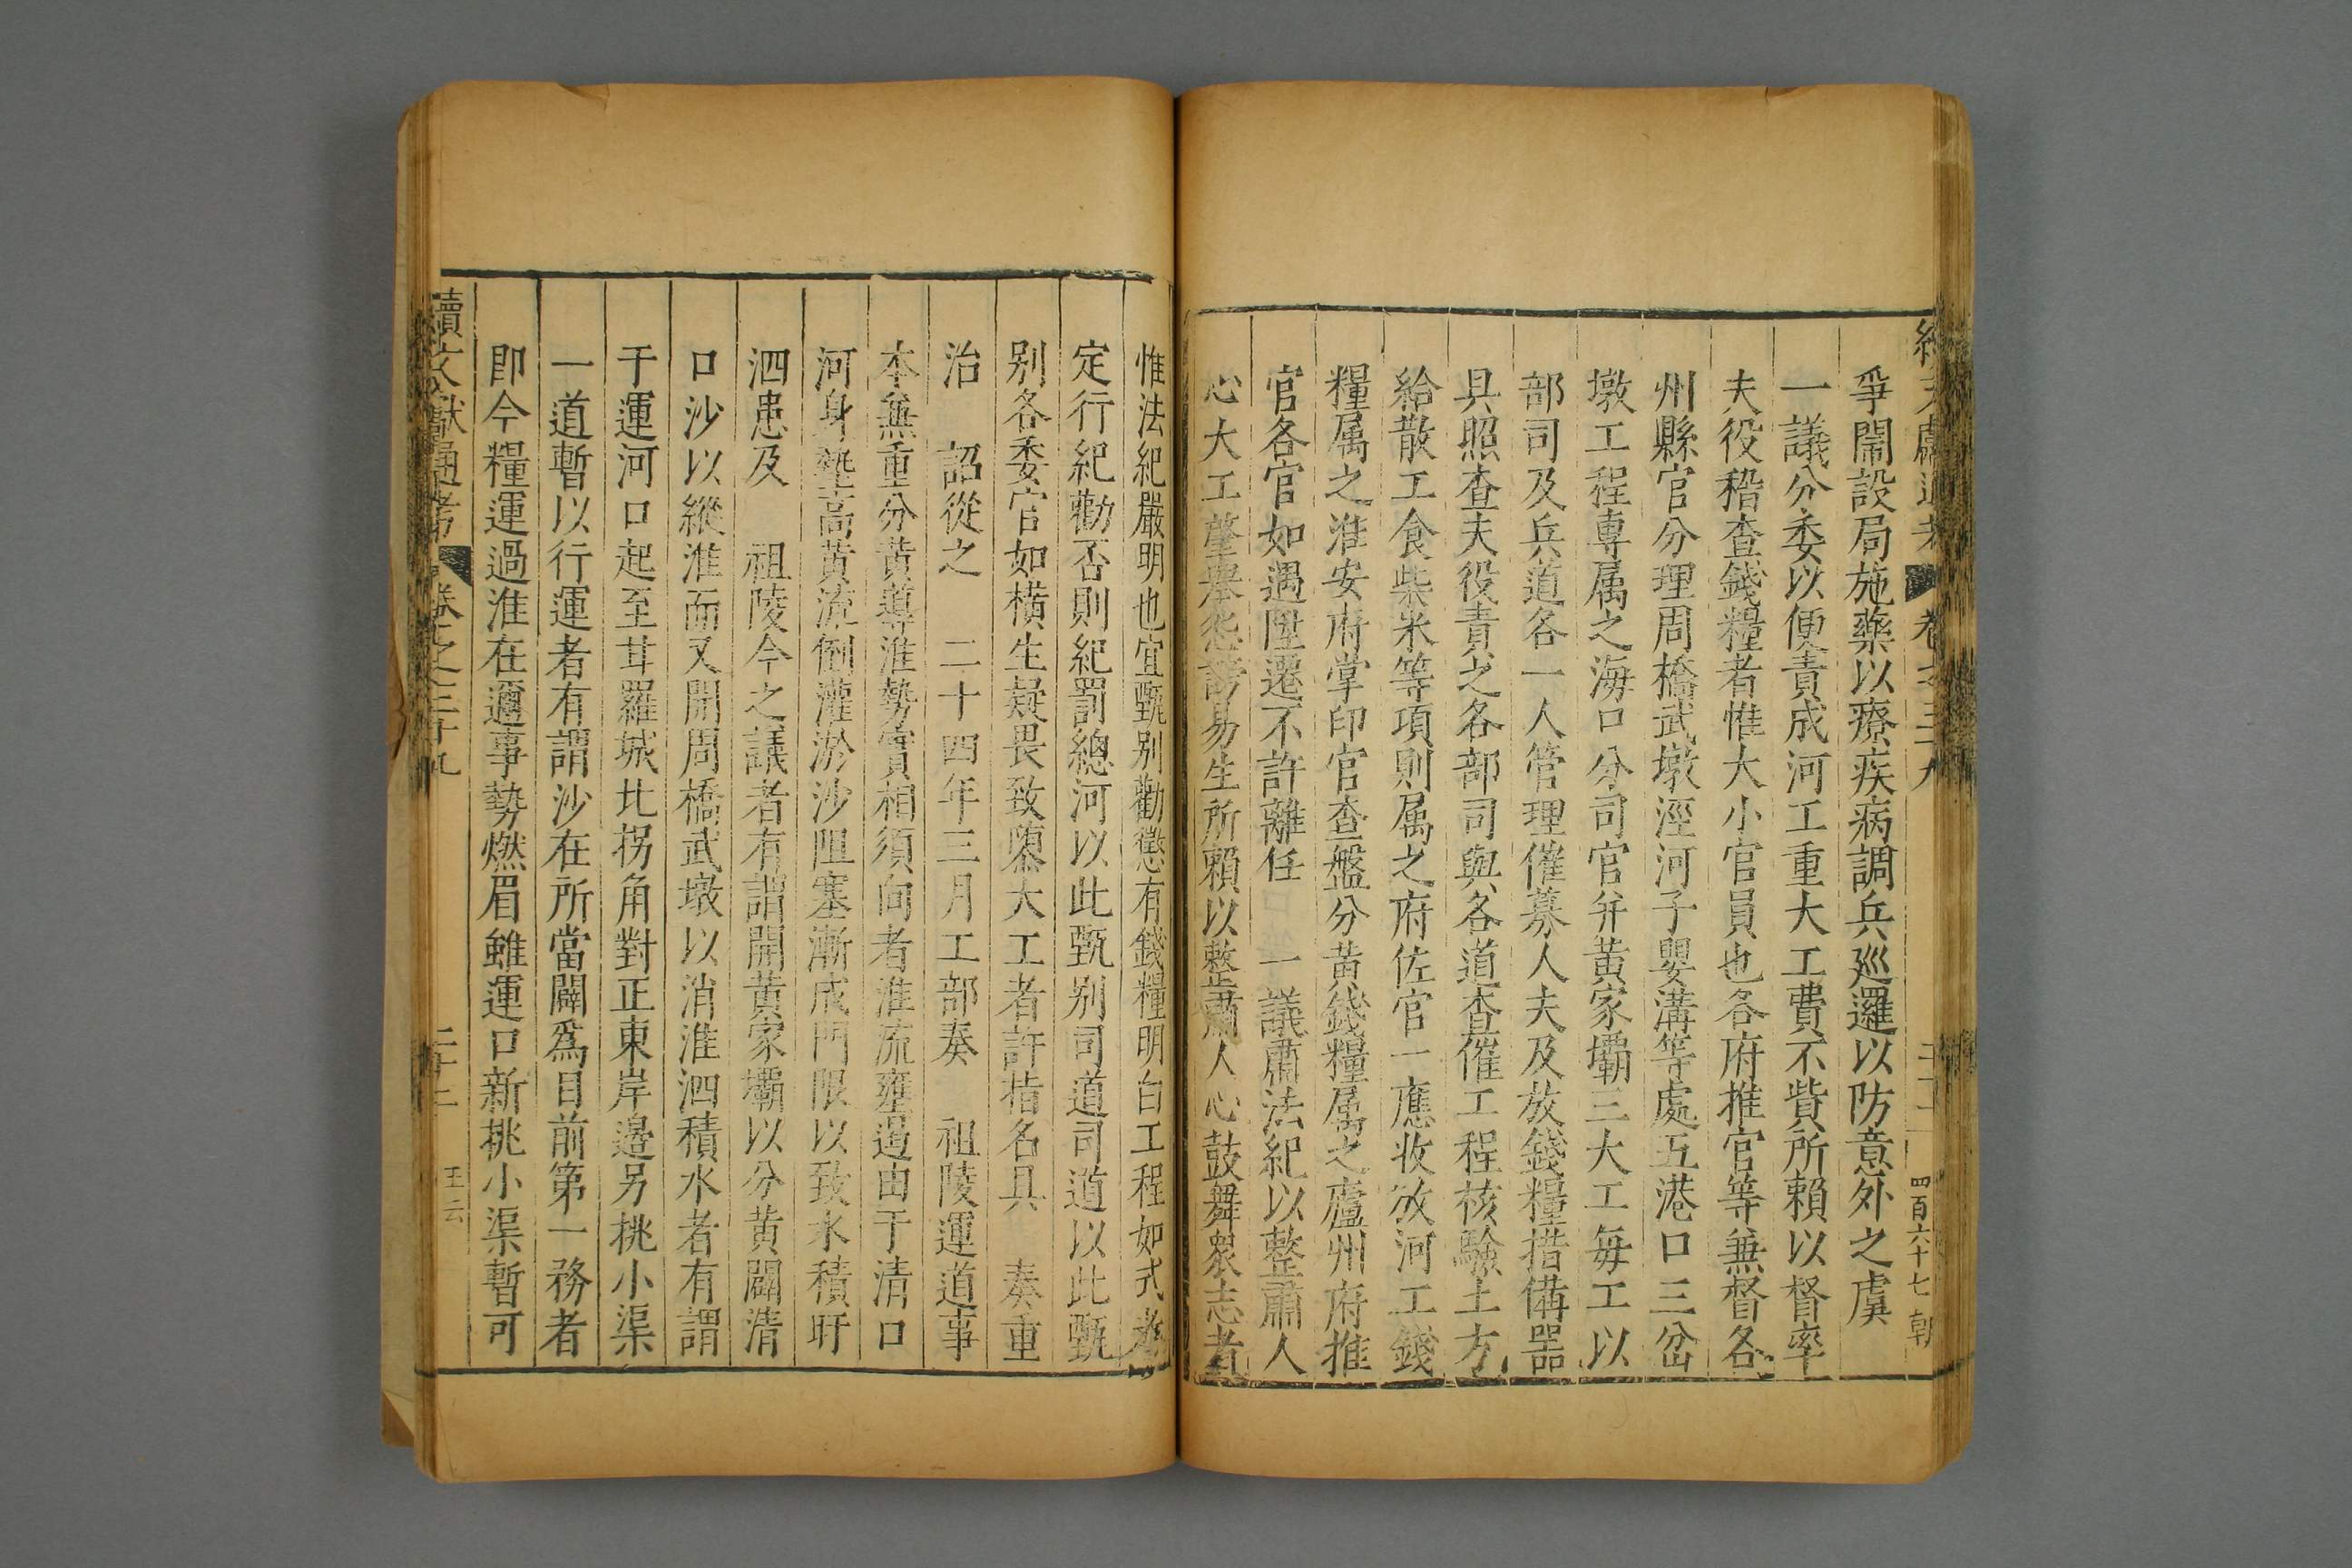 爭鬧設局施藥以療疾病調兵廵邏以防意外之虞
一議分委以便責成河工重大工費不貲所賴以督率
夫役稽查錢糧者惟大小官員也各府推官等無督各
州縣官分理周橋武墩涇河子嬰溝等處五港口三岔
墩工程專属之海口分司官并黃家壩三大工每工以
部司及兵道各一人管理催募人夫及放錢糧措備器
具照查夫役責之各部司與各道查催工程核驗土方
給散工食柴米等項則属之府佐官一應收放河工錢
糧属之淮安府掌印官查盤分黃錢糧属之廬州府推
官各官如遇陞遷不許離任 一議肅法紀以整肅人
心大工肇舉怨謗易生所賴以整肅人心鼓舞衆志者
惟法紀嚴明也宜甄别勸懲有錢糧明白工程如式者
定行紀勸否則紀罰總河以此甄别司道司道以此甄
别各委官如橫生疑畏致隳大工者許指名具 奏重
治 詔從之 二十四年三月工部奏 祖陵運道事
本無重分黃導淮勢實相須向者淮流壅遏由于清口
河身墊高黃流倒灌淤沙阻塞漸成門限以致水積盱
泗患及 祖陵今之議者有謂開黃家壩以分黃闢清
口沙以縱淮而又開周橋武墩以消淮泗積水者有謂
于運河口起至甘羅城北拐角對正東岸邊另挑小渠
一道暫以行運者有謂沙在所當闢爲目前第一務者
即今糧運過淮在邇事勢燃眉雖運口新挑小渠暫可
續文獻通考 卷之三十九 二十二 王云